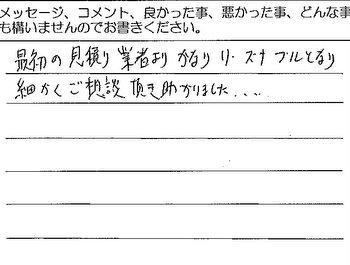 メッセージ、コメント、良かった事、悪かった事、どんな事
も構いませんのでお書きください。
最初の見積り業者よりかなりリーズナブルとなり
細かくご相談頂き助かりました....